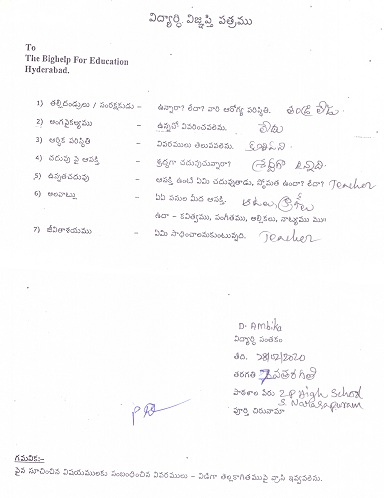 విద్యార్ధి విజ్ఞప్తి పత్రము
To
The Bighelp For Education
Hyderabad.
1) తల్లిదండ్రులు / సంరక్షకుడు – ఉన్నారా? లేదా? వారి ఆరోగ్య పరిస్థితి. తండ్రి లేడు.
2) అంగవైకల్యము – ఉన్నచో వివరించవలెను. లేదు
3) ఆర్థిక పరిస్థితి – వివరములు తెలుపవలెను.
4) చదువు పై ఆసక్తి – శ్రద్ధగా చదువుచున్నారా?
5) ఉన్నతచదువు – ఆసక్తి ఉంటే ఏమి చదువుతాడు, స్తోమత ఉందా? లేదా? Teacher
6) అలవాట్లు – ఏఏ పనుల మీద ఆసక్తి. ఆటలు,
ఉదా – కవిత్వము, సంగీతము, అల్లికలు, నాట్యము మొ॥
7) జీవితాశయము – ఏమి సాధించాలనుకుంటున్నది. Teacher
D. Ambika
విద్యార్ధి సంతకం
తేది. 28/02/2020
తరగతి 7వ తరగతి
పాఠశాల పేరు Z.P High School
S. Narasapuram
పూర్తి చిరునామా
గమనిక:-
పైన సూచించిన విషయములకు సంబంధించిన వివరములు – విడిగా తెల్లకాగితముపై వ్రాసి ఇవ్వవలెను.